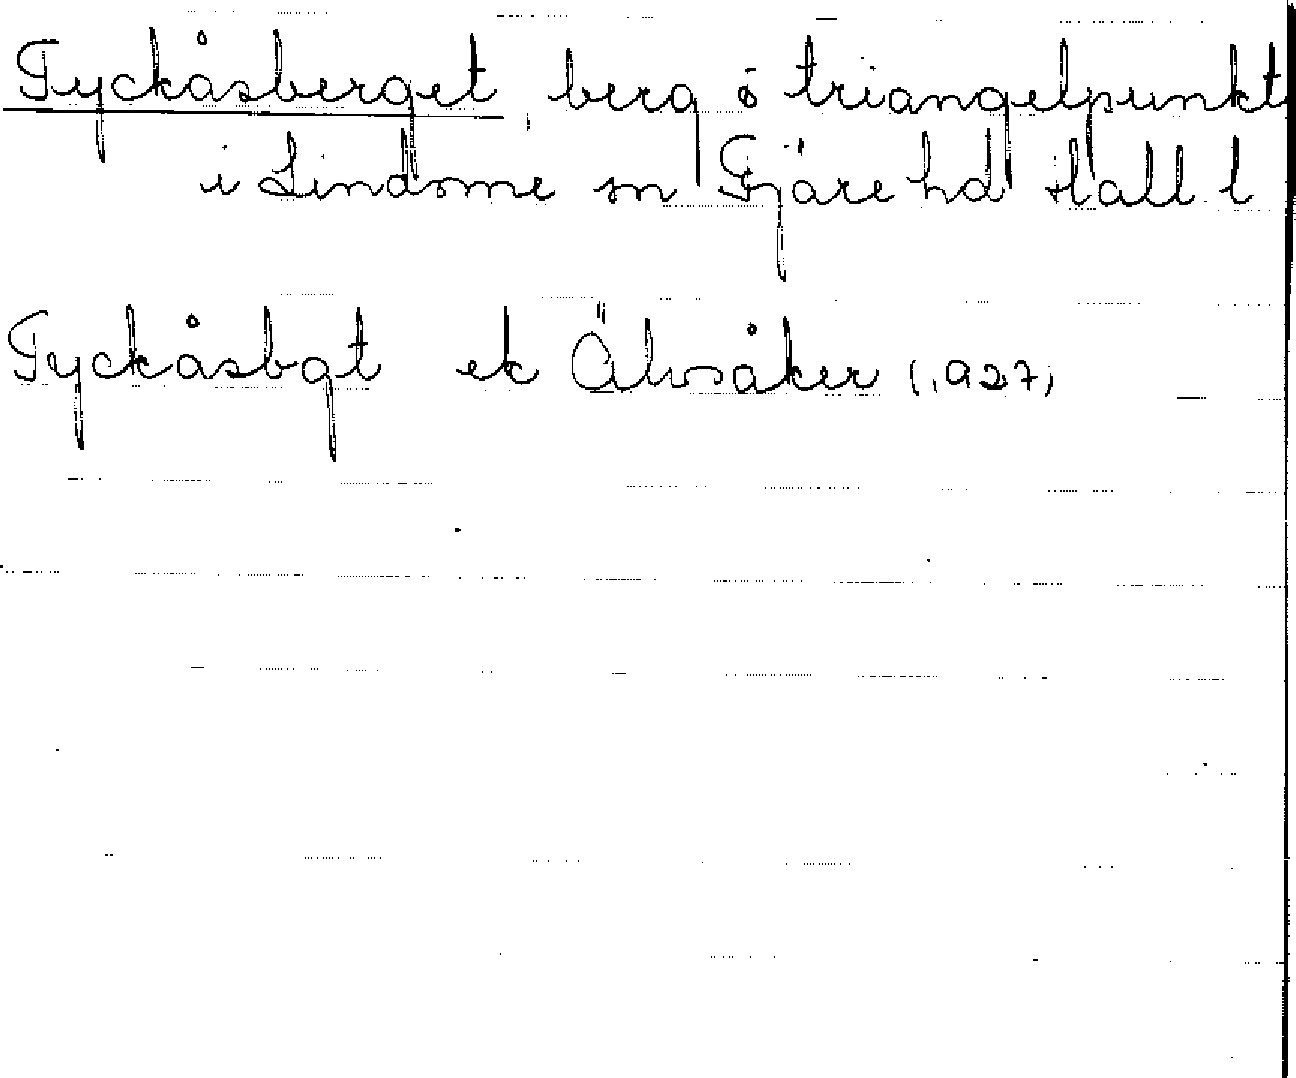 Tyckåsberget, berg ö triangelpunkt
i Lindome sn Fjäre hd Hall l
Tyckåsbgt ek Älvsåker (1927)